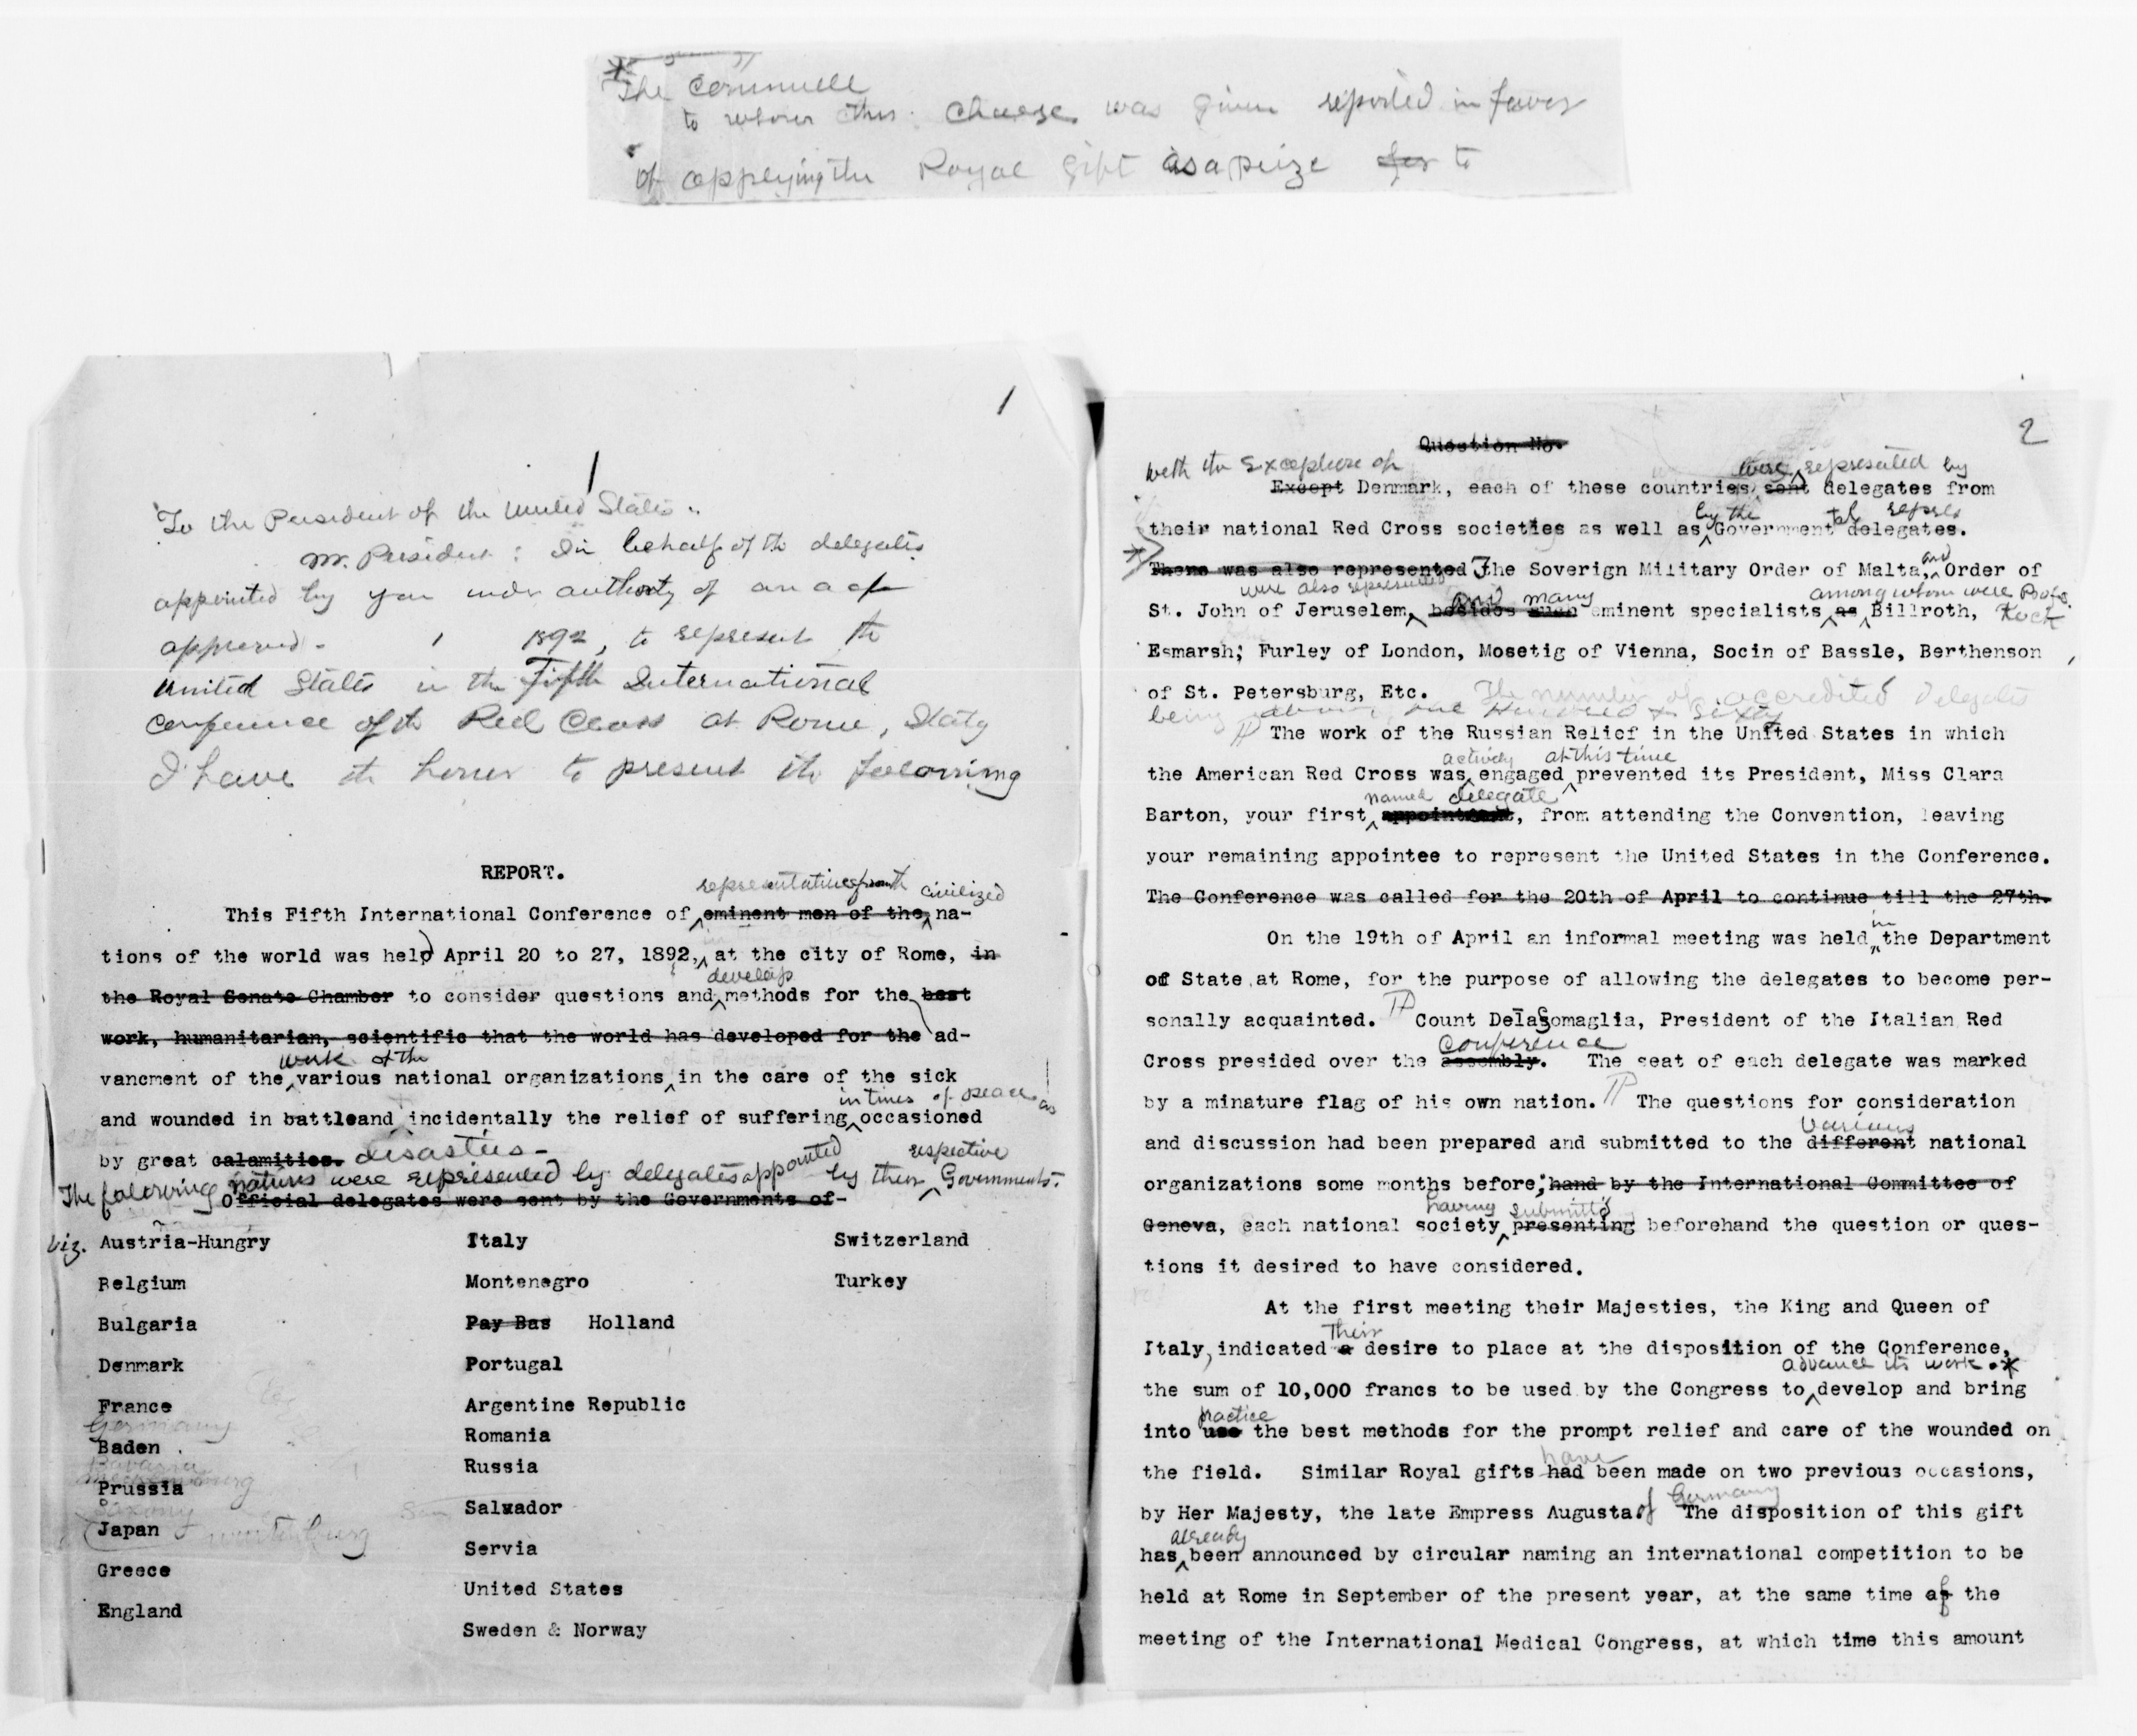 *
The Committee
to whom this charge was given reported in favor
of applying the Royal gift as a prize for to
1
To the President of the United States..
Mr. President: In behalf of the delegates
appointed by you under authority of an act
approved - 1892, to represent the
United States in the Fifth International
Conference of the Red Cross at Rome, Italy
I have the honor to present the following
REPORT.
representatives from the civilized
This Fifth International Conference of eminent men of the na-
tions of the world was held April 20 to 27, 1892, at the city of Rome, in
develop
the Royal Senate Chamber to consider questions and methods for the best
work, humanitarian, scientific that the world has developed for the ad-
work of the
vancment of the various national organizations in the care of the sick
in times of peace as
and wounded in battleand incidentally the relief of suffering occasioned
by great calamities. disasters -
The following nations were represented by delegates appointed by their respective Governments.
Official delegates were sent by the Governments of-
viz. Austria-Hungry Italy Switzerland
Belgium Montenegro Turkey
Bulgaria Pay Bas Holland
Denmark Portugal
France Argentine Republic
Germany
Baden Romania
Bavaria
Mecklenburg Russia
Prussia
Saxony Salvador
Japan Wurtemburg
Servia
Greece
United States
England
Sweden & Norway
2
Question No.
with the Exception of were represented by
Except Denmark, each of these countries sent delegates from
by the
their national Red Cross societies as well as Government delegates.
* There was also represented The Soverign Military Order of Malta, and Order of
were also represented and many among whom were Profs.
St. John of Jeruselem, besides such eminent specialists as Billroth, Koch
Esmarsh; Furley of London, Mosetig of Vienna, Socin of Bassle, Berthenson
of St. Petersburg, Etc. The number of accredited delegates
being about one Hundred & Sixty
The work of the Russian Relief in the United States in which
actively at this time
the American Red Cross was engaged prevented its President, Miss Clara
named delegate
Barton, your first appointment, from attending the Convention, leaving
your remaining appointee to represent the United States in the Conference.
The Conference was called for the 20th of April to continue till the 27th.
in
On the 19th of April an informal meeting was held the Department
of State at Rome, for the purpose of allowing the delegates to become per-
sonally acquainted. Count DelaSomaglia, President of the Italian Red
conference
Cross presided over the assembly. The seat of each delegate was marked
by a minature flag of his own nation. The questions for consideration
various
and discussion had been prepared and submitted to the different national
organizations some months before; hand by the International Committee of
having submitted
Geneva, each national society presenting beforehand the question or ques-
tions it desired to have considered.
At the first meeting their Majesties, the King and Queen of
Their
Italy, indicated a desire to place at the disposition of the Conference,
advance its work. *
the sum of 10,000 francs to be used by the Congress to develop and bring
practice
into use the best methods for the prompt relief and care of the wounded on
have
the field. Similar Royal gifts had been made on two previous occasions,
of Germany
by Her Majesty, the late Empress Augusta. The disposition of this gift
already
has been announced by circular naming an international competition to be
held at Rome in September of the present year, at the same time of the
meeting of the International Medical Congress, at which time this amount